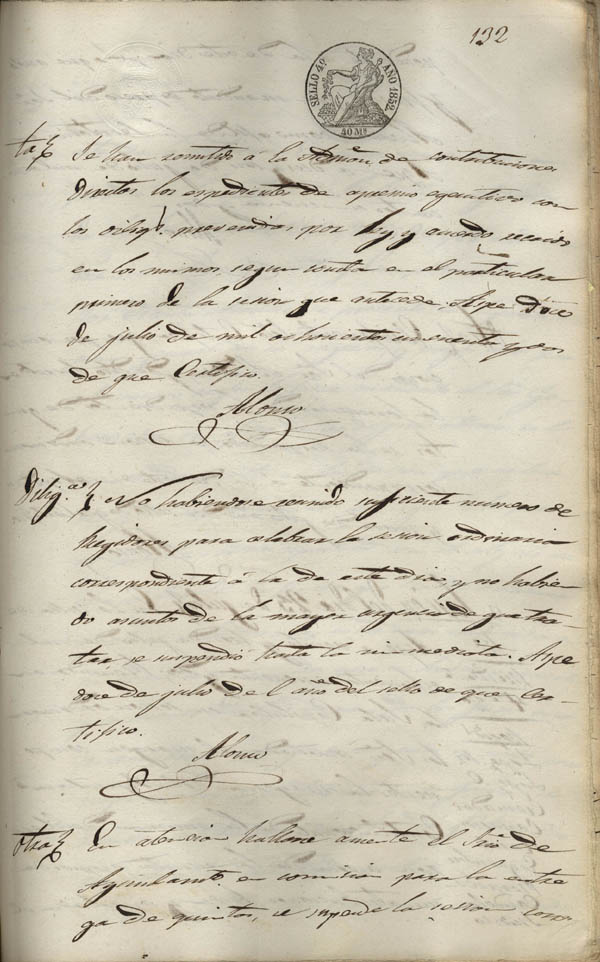 132
SELLO 4º AÑO 1852
40 Ms
ta
Se han remitido á la Admon. de contribuciones
directas los espedientes de apremio egecutivo con
los oblig.s prevenidos por ley y acuerdo recaido
en los mismos, segun consta en el particular
primero de la sesion que antecede. Aspe doce
de julio de mil ochocientos cincuenta y dos
de que Certifico.
Alonso
Dilig.a
No habiendose reunido suficiente numero de
Regidores para celebrar la sesion ordinaria
correspondiente á la de este dia, y no habien
do asuntos de la mayor urgencia de que tra-
tar se suspendio hasta la inmediata. Aspe
doce de julio de l año del sello de que Cer-
tifico.
Alonso
otra
En atencion hallarse ausente el Srio de
Ayuntam.to en comision para la entre
ga de quintos, se suspende la sesion